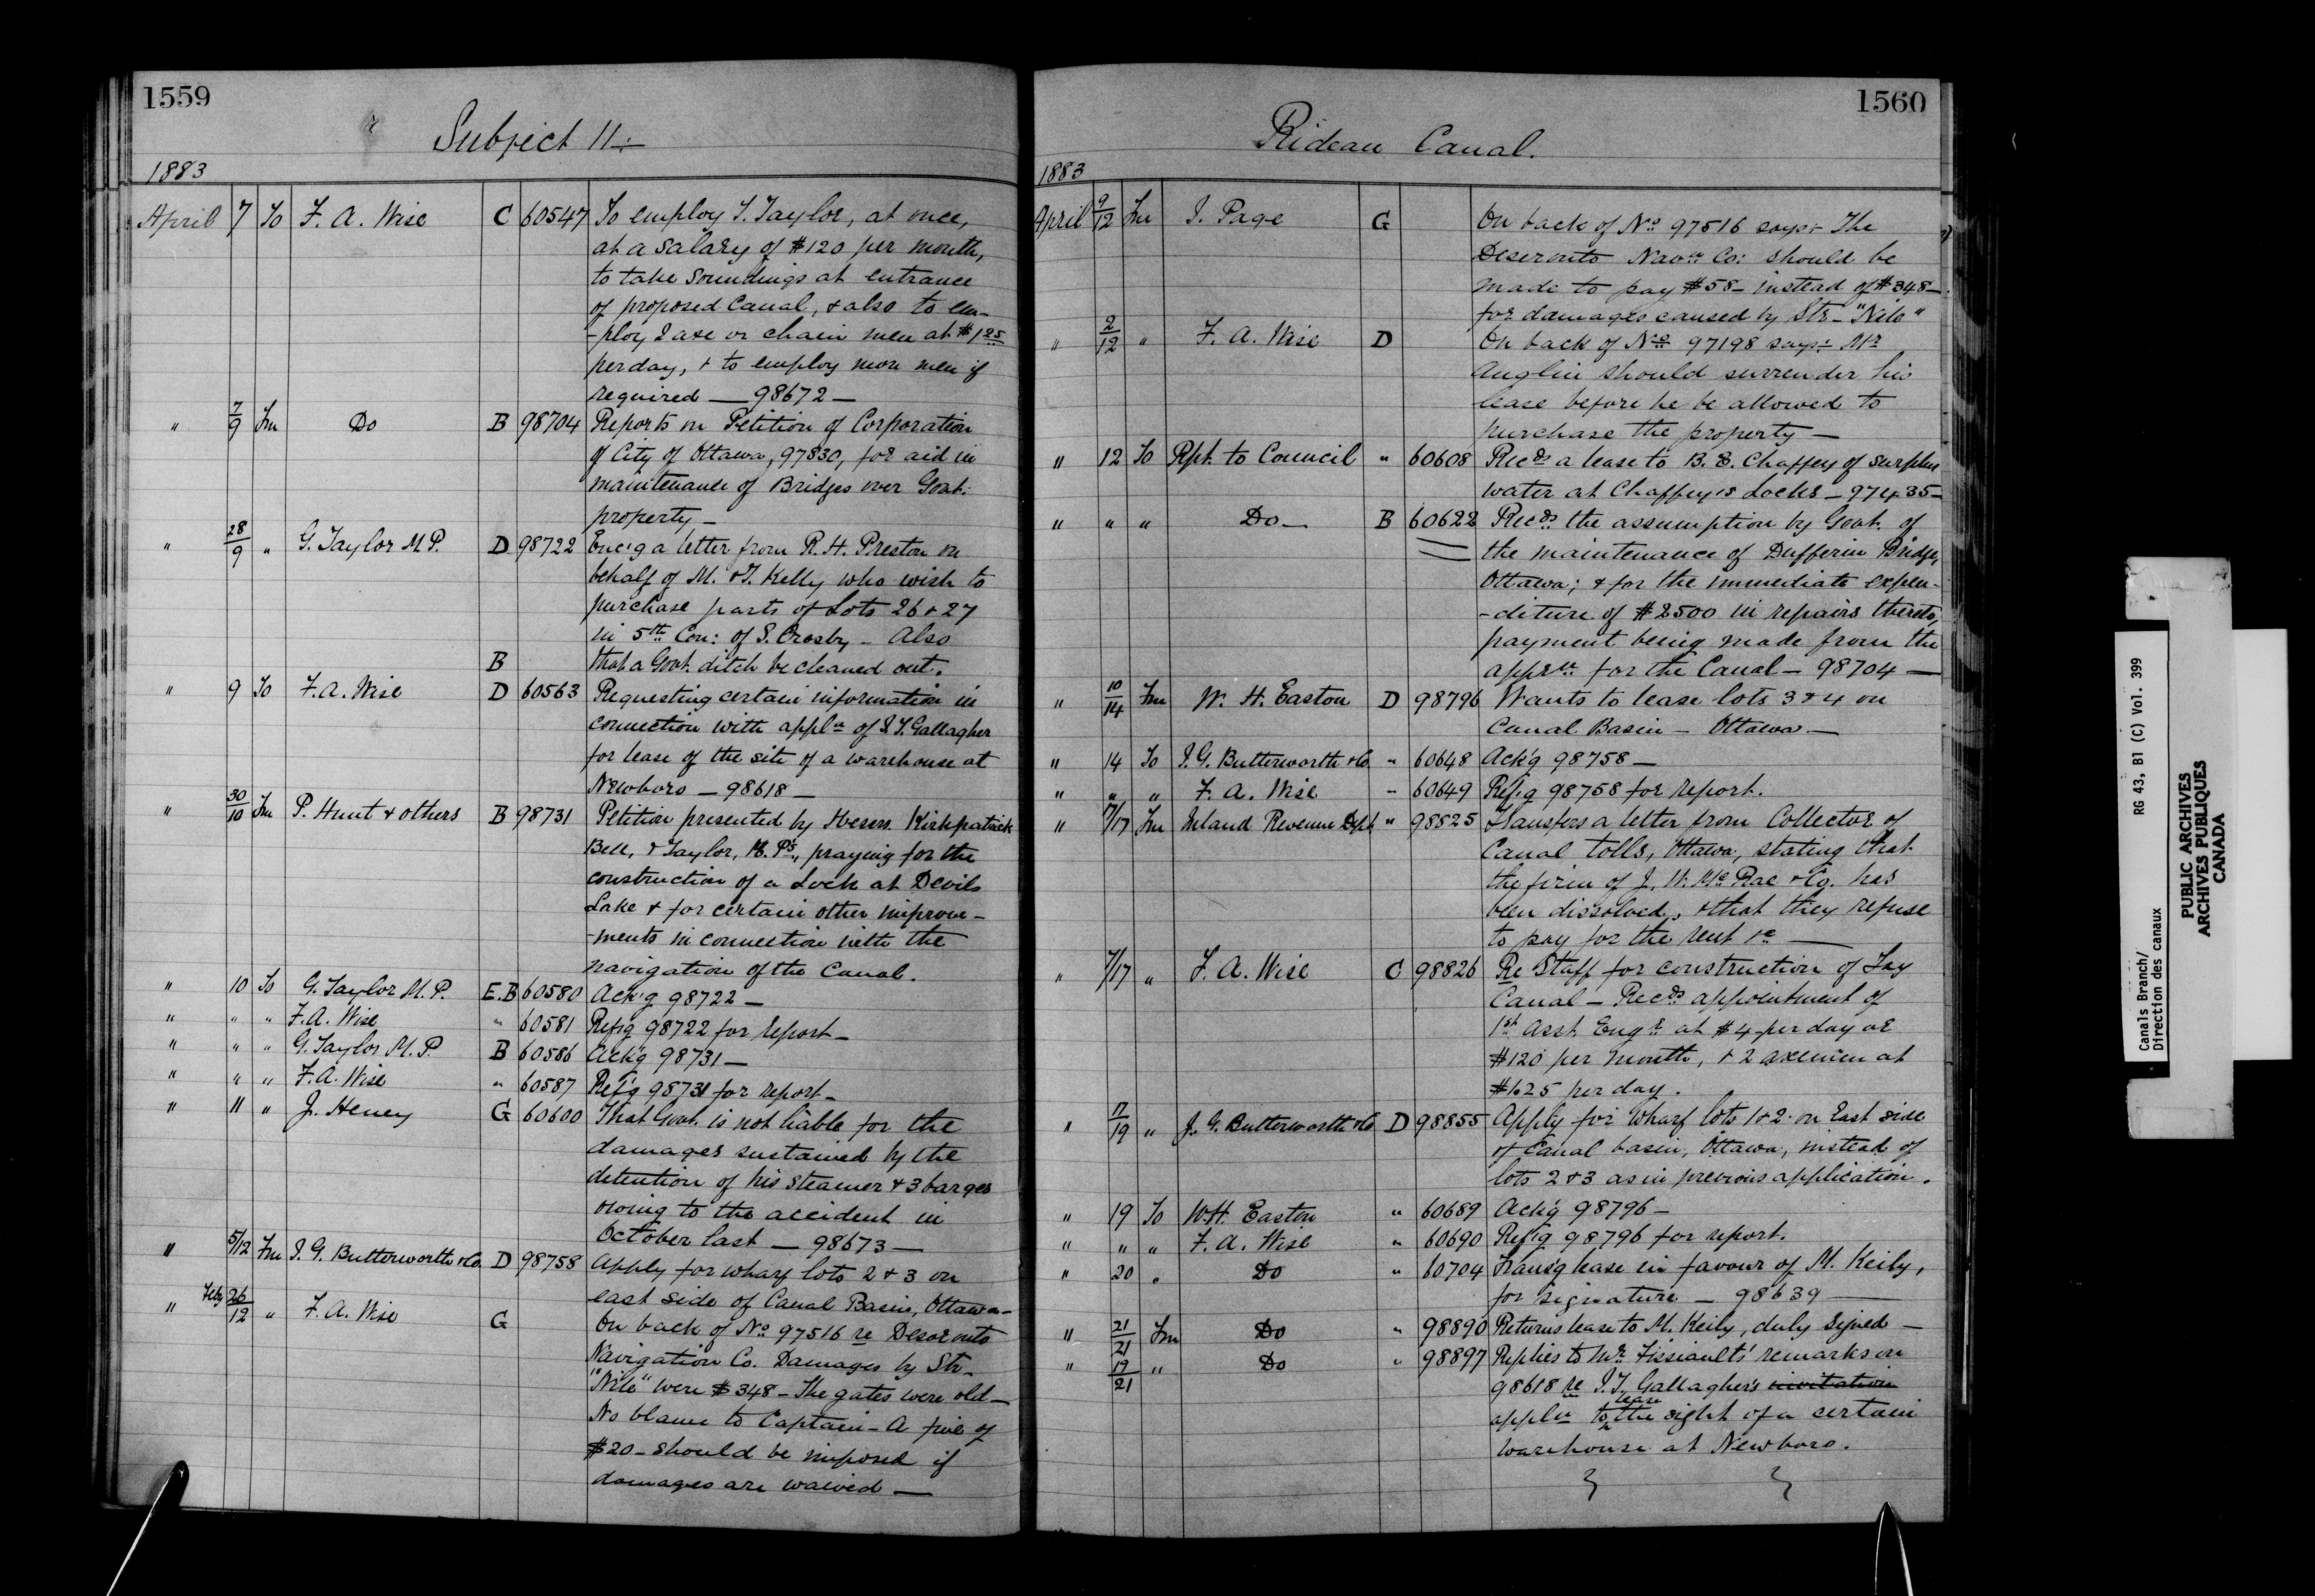 1559
Subject 11÷
1883
April 7 To F. A. Wise C 60547 To employ T. Taylor, at once,
at a salary of $120 per month,
to take soundings at entrance
of proposed Canal, & also to em-
-ploy 2 axe or chain men at $1.25
per day, & to employ more men if
required — 98672 —
" 7/9 Fm Do B 98704 Reports on Petition of Corporation
of City of Ottawa, 97830, for aid in
maintenance of Bridges over Govt.
property —
" 28/9 " G. Taylor M.P. D 98722 Enc'g a letter from R. H. Preston on
behalf of M. & T. Kelly who wish to
purchase parts of Lots 26 & 27
in 5th Con: of S. Crosby — Also
B that a Govt. ditch be cleaned out.
" 9 To F. A. Wise D 60563 Requesting certain information in
connection with appln of S. T. Gallagher
for lease of the site of a warehouse at
Newboro — 98618 —
" 30/10 Fm P. Hunt & others B 98731 Petition presented by Messrs. Kirkpatrick
Bell, & Taylor, M.P's, praying for the
construction of a Lock at Devils
Lake & for certain other improve-
-ments in connection with the
navigation of the Canal.
" 10 To G. Taylor M.P. E.B 60580 Ack'g 98722 —
" " " F. A. Wise " 60581 Ref'g 98722 for report —
" " " G. Taylor M.P. B 60586 Ack'g 98731 —
" " " F. A. Wise " 60587 Ref'g 98731 for report —
" 11 " J. Heney G 60600 That Govt. is not liable for the
damages sustained by the
detention of his steamer & 3 barges
owing to the accident in
October last — 98673 —
" 5/12 Fm J. G. Butterworth & Co. D 98758 Apply for wharf lots 2 & 3 on
east side of Canal Basin, Ottawa —
" Feby 26/12 " F. A. Wise G On back of No 97516 re Deseronto
Navigation Co. Damages by Str-
"Nile" were $348 — The gates were old —
No blame to Captain — A fine of
$20 — should be imposed if
damages are waived —
1560
Rideau Canal.
1883
April 9/12 Fm J. Page G On back of No 97516 says:- The
Deseronto Navn Co: should be
made to pay $58 — instead of $348 —
for damages caused by Str — "Nile"
" 2/12 " F. A. Wise D On back of No 97198 says:- Mr
Anglin should surrender his
lease before he be allowed to
purchase the property —
" 12 To Rpt. to Council " 60608 Recds a lease to B. E. Chaffey of surplus
water at Chaffey's Locks — 97435 —
" " " Do — B 60622 Recds the assumption by Govt. of
the maintenance of Dufferin Bridge,
Ottawa; & for the immediate expen-
-diture of $2500 in repairs thereto,
payment being made from the
apprn for the Canal — 98704 —
" 10/14 Fm W. H. Easton D 98796 Wants to lease lots 3 & 4 on
Canal Basin — Ottawa —
" 14 To J. G. Butterworth & Co " 60648 Ack'g 98758 —
" " " F. A. Wise " 60649 Ref'g 98758 for report.
" 7/17 Fm Inland Revenue Dept " 98825 Transfers a letter from Collector of
Canal tolls, Ottawa, stating that
the firm of J. W. McRae & Co. has
been dissolved, & that they refuse
to pay for the rent &c —
" 7/17 " F. A. Wise C 98826 Re Staff for construction of Tay
Canal — Recds appointment of
1st Asst Engr at $4 per day or
$120 per month, & 2 axemen at
$1.25 per day.
" 17/19 " J. G. Butterworth & Co D 98855 Apply for wharf lots 1 & 2 on East side
of Canal basin, Ottawa, instead of
lots 2 & 3 as in previous application.
" 19 To W. H. Easton " 60689 Ack'g 98796 —
" " " F. A. Wise " 60690 Ref'g 98796 for report.
" 20 " Do " 60704 Trans'g lease in favour of M. Keily,
for signature — 98639 —
" 21/21 Fm Do " 98890 Returns lease to M. Keily, duly signed —
" 19/21 " Do " 98897 Replies to Mr. Fissiault's remarks on
98618 re J. T. Gallagher's invitation
appln to lease the sight of a certain
warehouse at Newboro.
Canals Branch/
Direction des canaux
RG 43, B1 (C) Vol. 399
PUBLIC ARCHIVES
ARCHIVES PUBLIQUES
CANADA